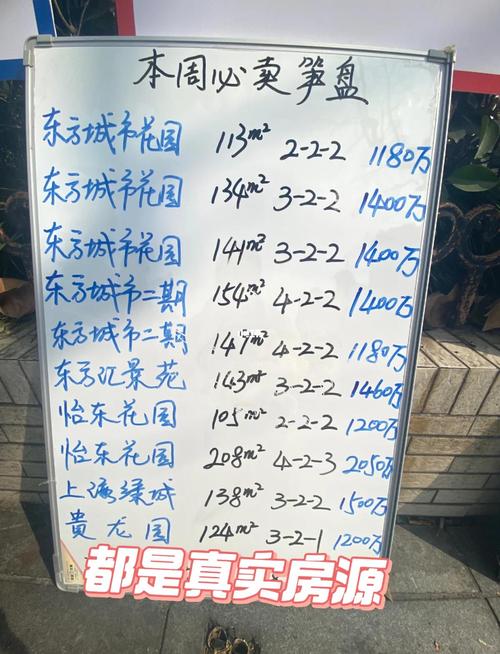 本周必卖笋盘
东方城市花园 113m² 2-2-2 1180万
东方城市花园 134m² 3-2-2 1400万
东方城市花园 141m² 3-2-2 1400万
东方城市二期 154m² 4-2-2 1400万
东方城市二期 147m² 4-2-2 1180万
东方汇景苑 143m² 3-2-2 1460万
怡东花园 105m² 2-2-2 1200万
怡东花园 208m² 4-2-3 2050万
上海绿城 138m² 3-2-2 1500万
贵龙园 124m² 3-2-1 1200万
都是真实房源